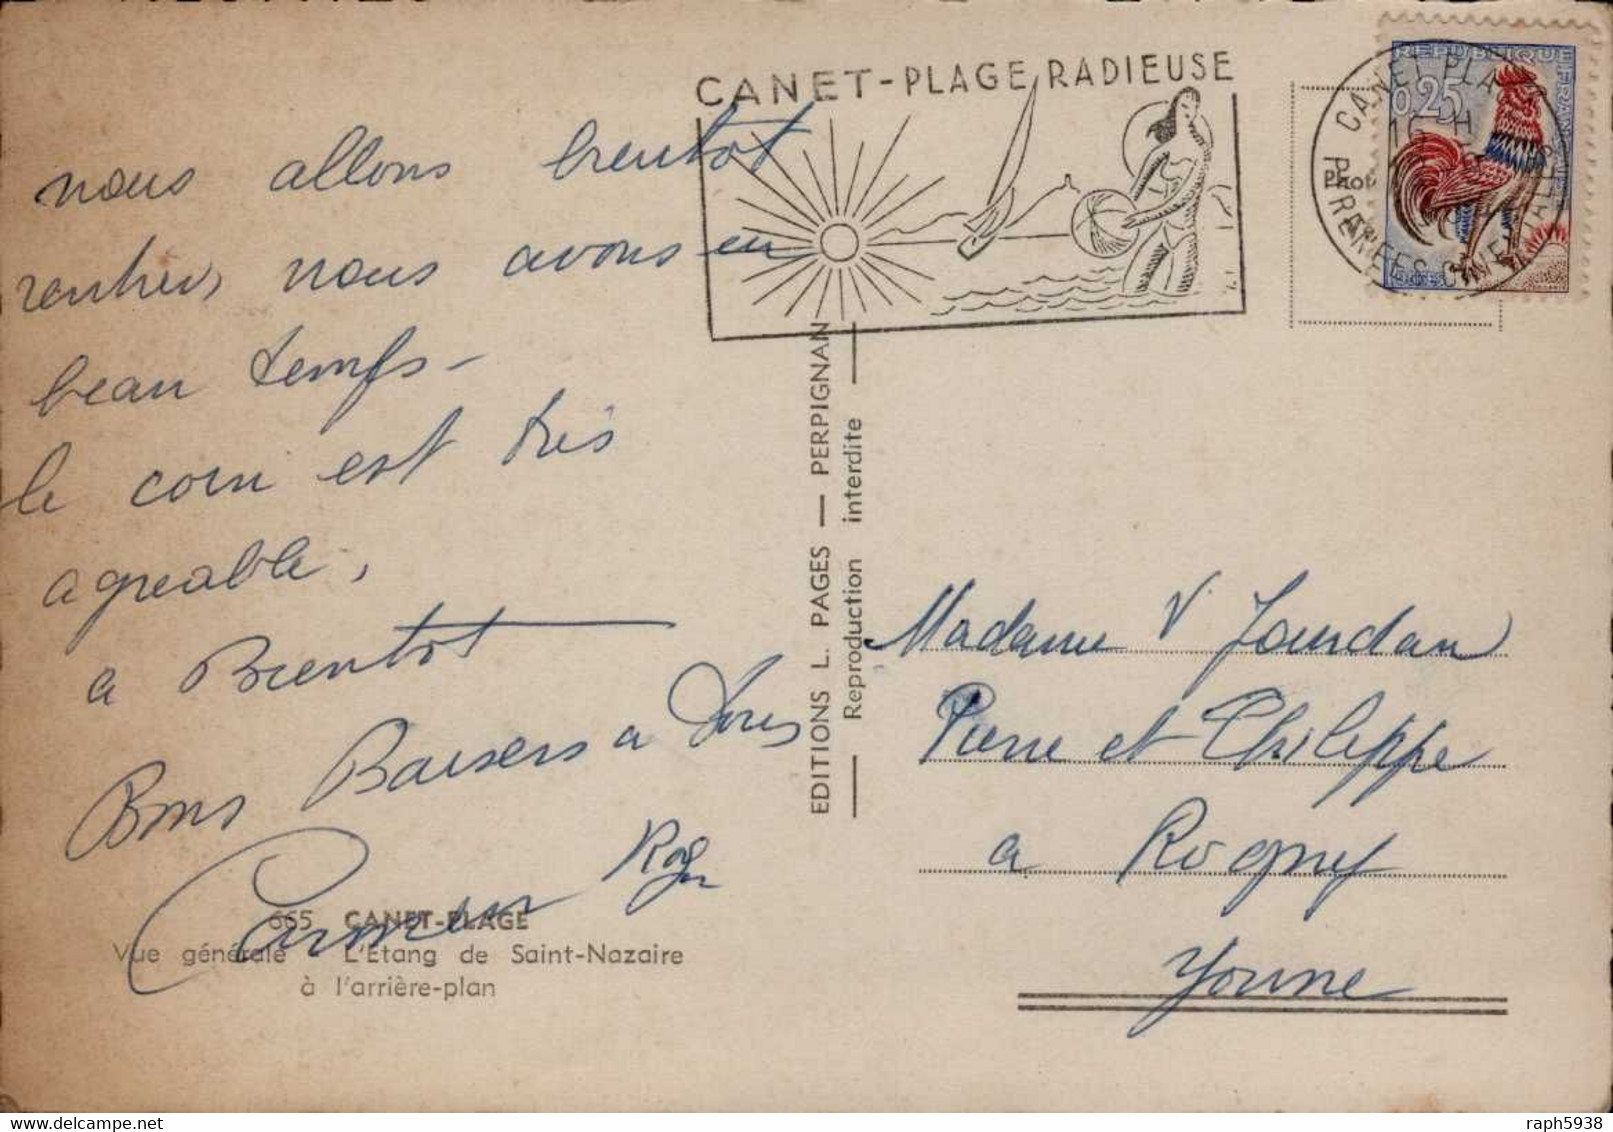 nous allons bientot
rentrer, nous avons eu
beau temps -
le coin est très
agreable,
a Bientot
Bons Baisers a tous
Carmen Roger
665 CANET-PLAGE
Vue générale L'Etang de Saint-Nazaire
à l'arrière-plan
CANET-PLAGE RADIEUSE
EDITIONS L. PAGES — PERPIGNAN
Reproduction interdite
REPUBLIQUE FRANÇAISE
0,25
CANET PLAGE
16 H
PYRENEES ORIENTALES
Madame V. Jourdan
Pierre et Philippe
a Rogny
Yonne
raph5938